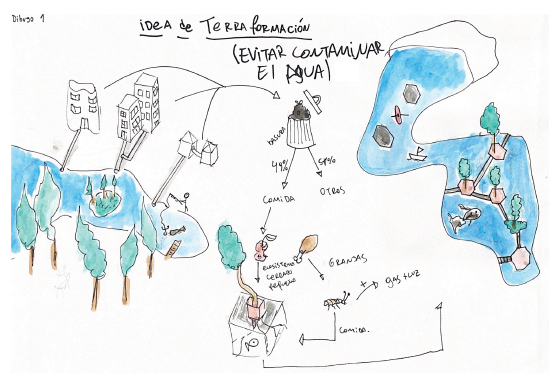 Dibujo 1
IDEA de TERRAFORMACIÓN
(EVITAR CONTAMINAR
El AGUA)
BASURA
49%
51%
COMIDA
OTROS
ECOSISTEMA
CERRADO
PEQUEÑO
GRANJAS
+
GAS + LUZ
COMIDA.